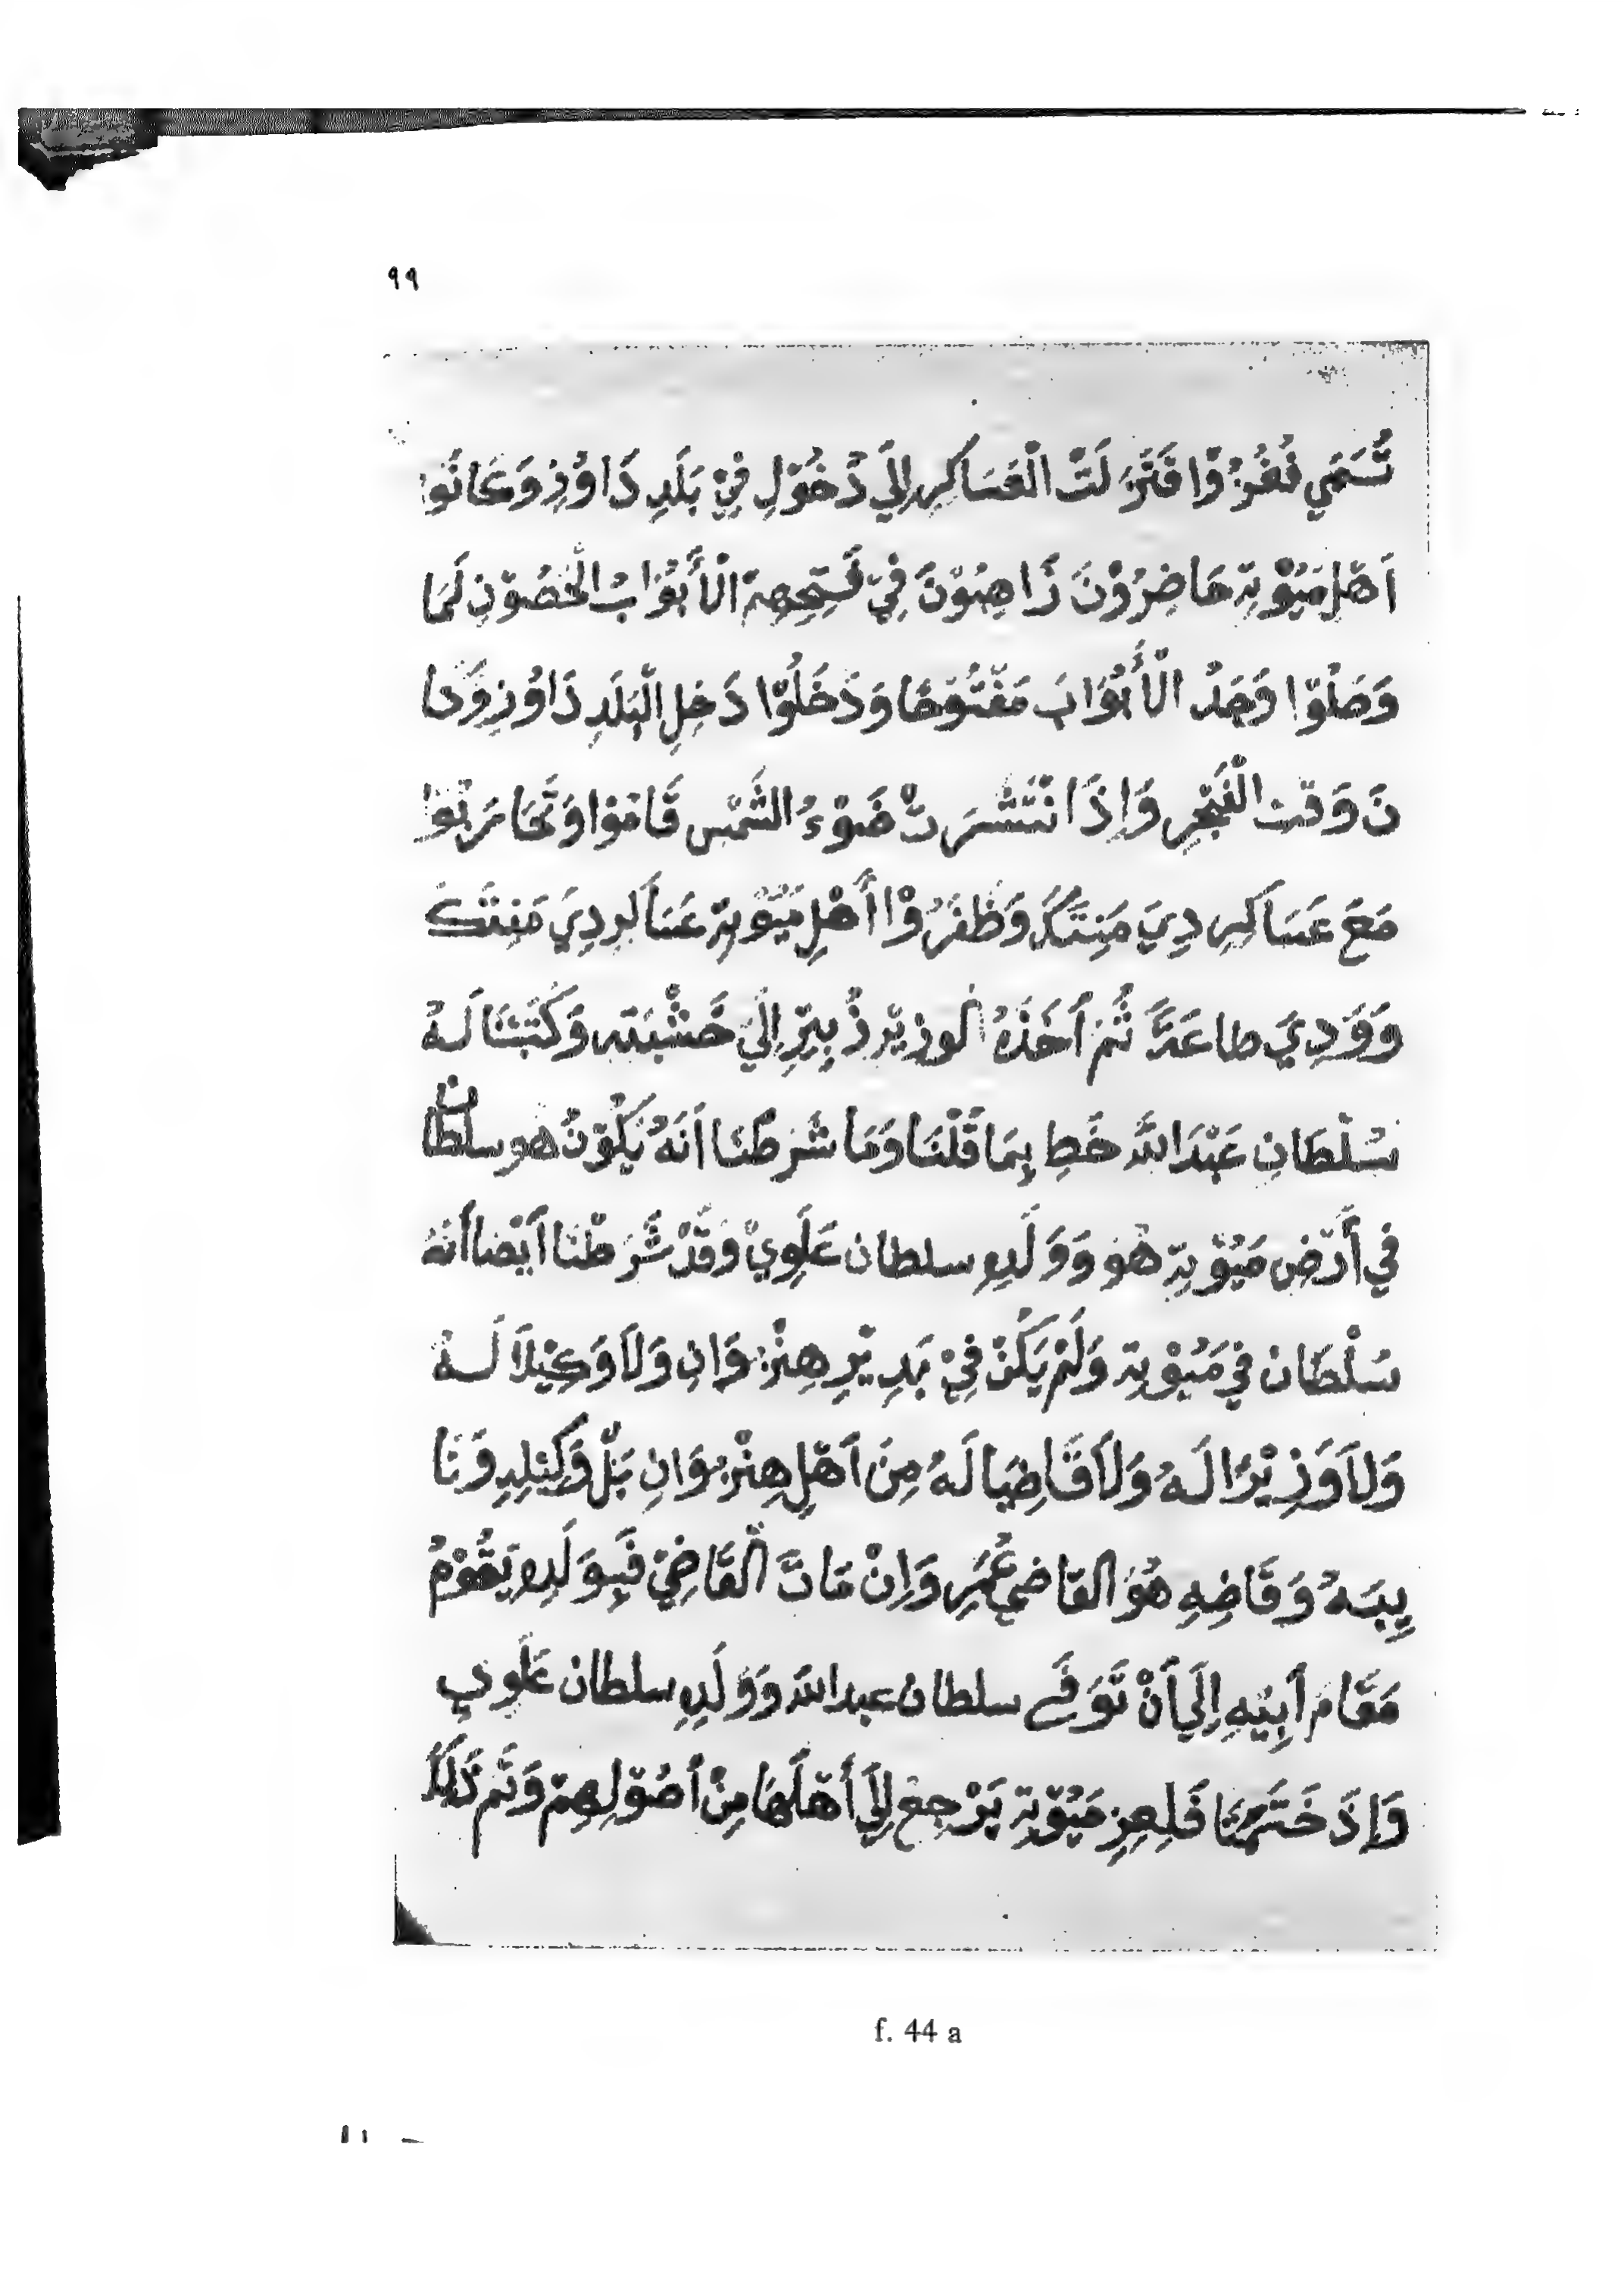 ٩٩
تُسَمَي نُغُزُوْا فَتَزَ لَتْ الْعَسَاكِرِ اِلَي دُخُوْلِ فِيْ بَلَدِ دَاوُزِ وَكَانَوا
اَهْلِ مَيُوْتِهْ حَاضِرُوْنَ ذَاهِبُوْنَ فِيْ الْأَبْوَابُ الْحُصُوْنِ لَمَا
وَصَلُوْا وَجَدُ الْأَبْوَابَ مَفْتُوْحًا وَدَخَلُوْا دَخِلِ الْبَلَدِ دَاوُزِ وَكا
نَ وَقت الْفَجْرِ وَاِذَا نْتَشَرَتْ ضَوْءُ الشَمْس قَامُوا وَتَحَارَبُوا
مَعَ عَسَاكِرِ دِيَ مَنِتَكَ وَظَفَرُوْا أَهْلِ مَيُوْتِهْ عَسَاكِر دِيَ مَنِتَكَ
وَوَدِيَ طاعَةً ثُمَ اَخَذَهُ الوزيْر ذُبِيْرِ اِلَيَ خَشْبَتِه وَكَتَبْنَا لَهُ
سُلْطَانِ عَبْدَ اللَّه خَطِ بِمَا قُلْنَا وَمَا شَرَطْنَا اَنَهُ يَكُوْنُ هو سلطان
في أَرْضِ مَيُوْتِهْ هُوَ وَوَلَدِهِ سلطان عَلَوِيْ وَقَدْ شَرَطْنَا اَيْضا أَنَهُ
سُلْطَان في مَيُوْتِهْ وَلَمْ يَكُنْ فِيْ يَدِ يْرِ هِنْزُوَانِ وَلَا وَكِيْلَا لَهُ
وَلَا وَزِيْرًا لَهُ وَلَا قَاضِيا لَهُ مِنَ اَهْلِ هِنْزُوَانِ بَلْ وَكِيْلِهِ وَنَا
يِبَهُ وَقَاضِهِ هُوَ القاضي عُمَر وَاِنْ مَاتَ الْقَاضِيْ فَيِوَلَدِهِ يَقُوْمُ
مَقَام اَبِيْهِ اِلَيَ أَنْ تَوَفَى سلطان عبد اللَّه وَوَلَدِهِ سلطان عَلَوِي
وَاِذَ خَتَرَمَا فَلِعِزِ مَيُوْتِهْ يَرْجِعْ اِلَيَ أَهْلَهَا مِنْ اَصُوْلِهِمْ وَتَم ذَلِكَ
f. 44 a